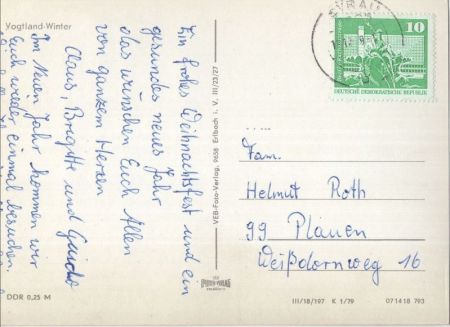 Vogtland-Winter
Ein frohes Weihnachtsfest und ein
gesundes neues Jahr
das wünschen Euch Allen
von ganzem Herzen
Claus, Brigitte und Guido
Im Neuen Jahr kommen wir
Euch wieder einmal besuchen.
DDR 0,25 M
VEB-Foto-Verlag, 9658 Erlbach i. V. III/23/27
10
DEUTSCHE DEMOKRATISCHE REPUBLIK
Fam.
Helmut Roth
99 Plauen
Weißdornweg 16
III/18/197 K 1/79 071418 793